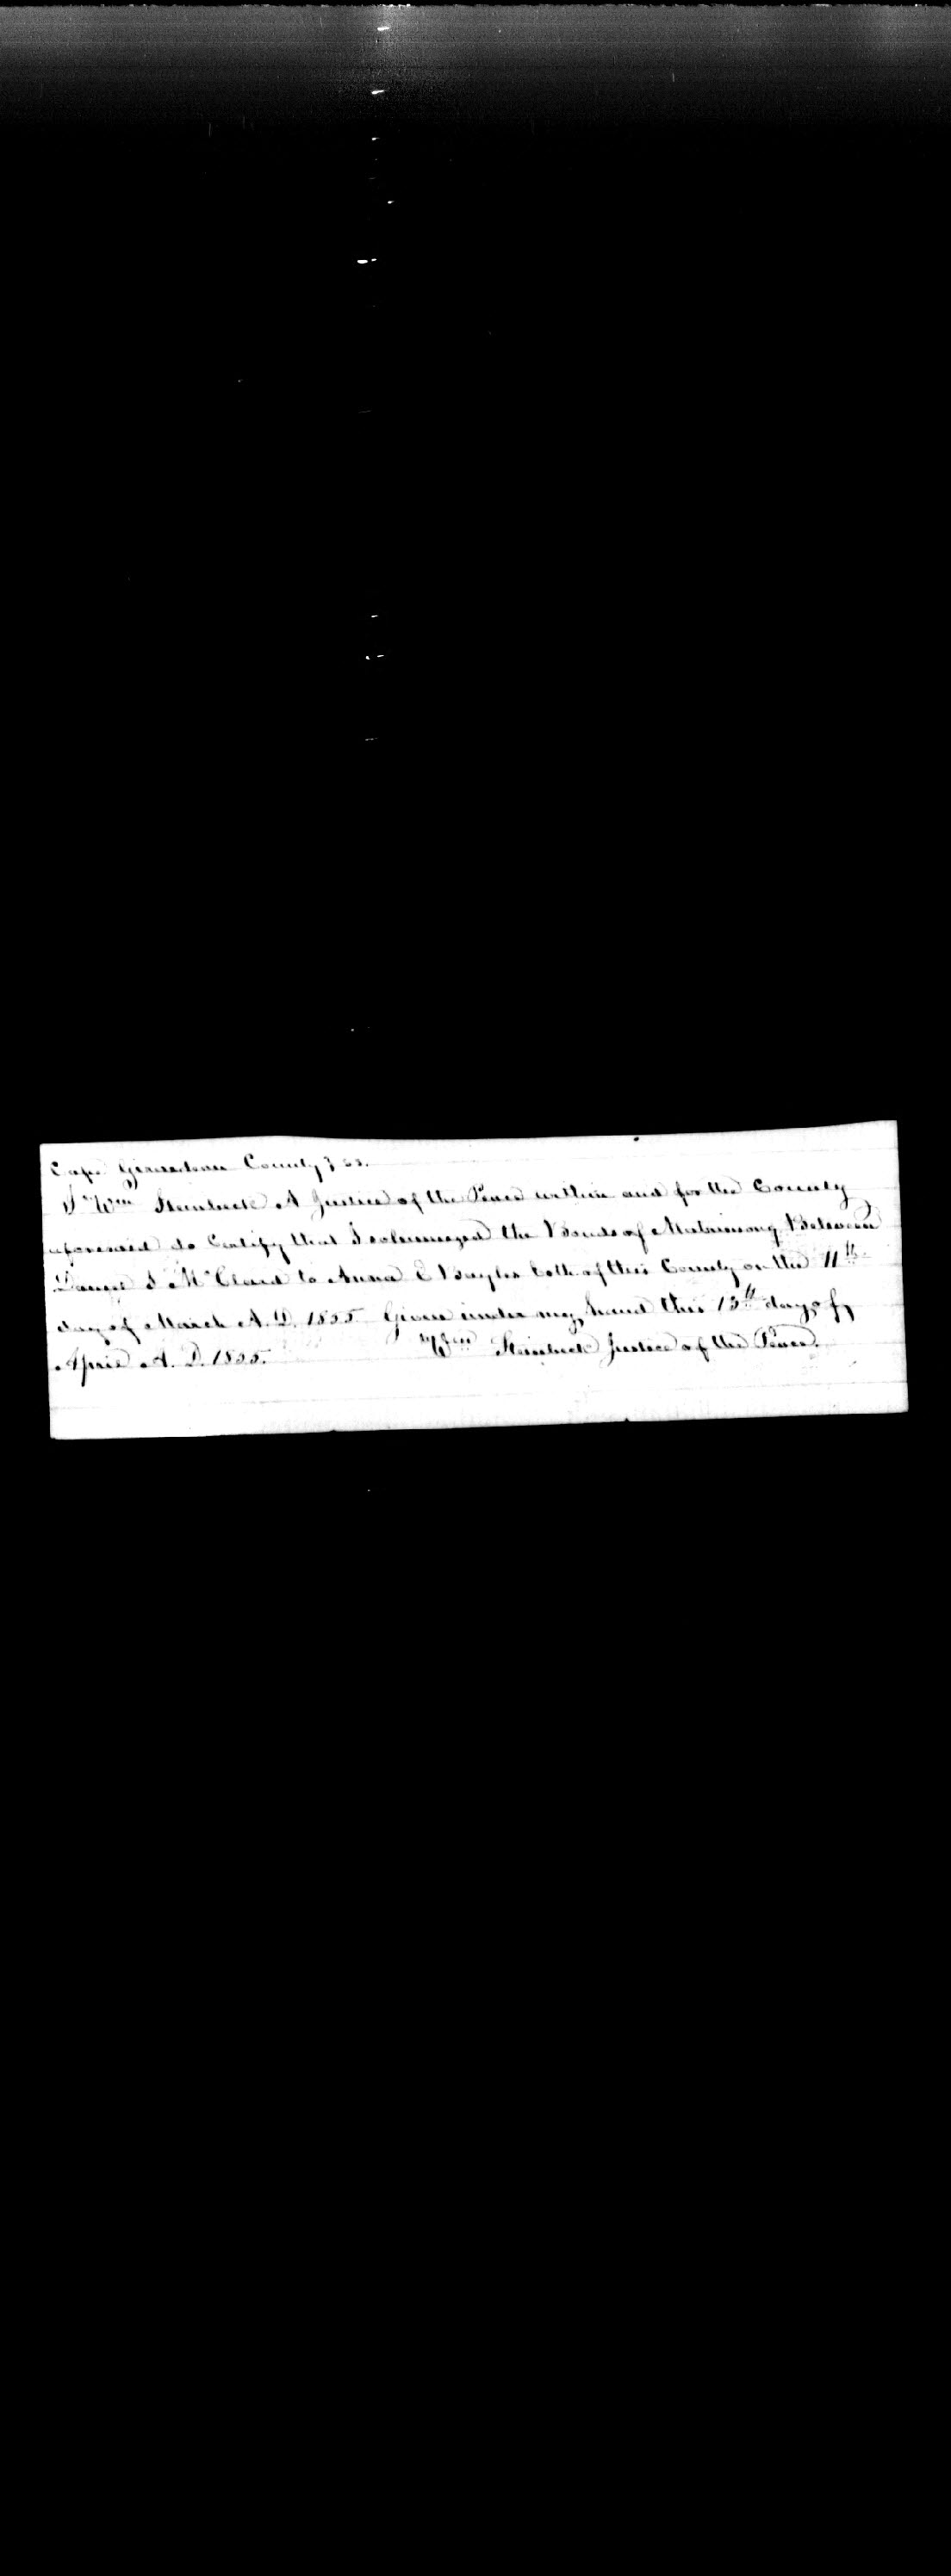 Cape Girardeau County } ss.
I Wm Steinbeck A Justice of the Peace within and for the County
aforesaid do Certify that I solemnized the Bonds of Matrimony Between
Daniel S McClard to Anna E Bayles both of this County on the 11th
day of March A. D. 1855 Given under my hand this 13th day of
April A. D. 1855. Wm Steinbeck Justice of the Peace.